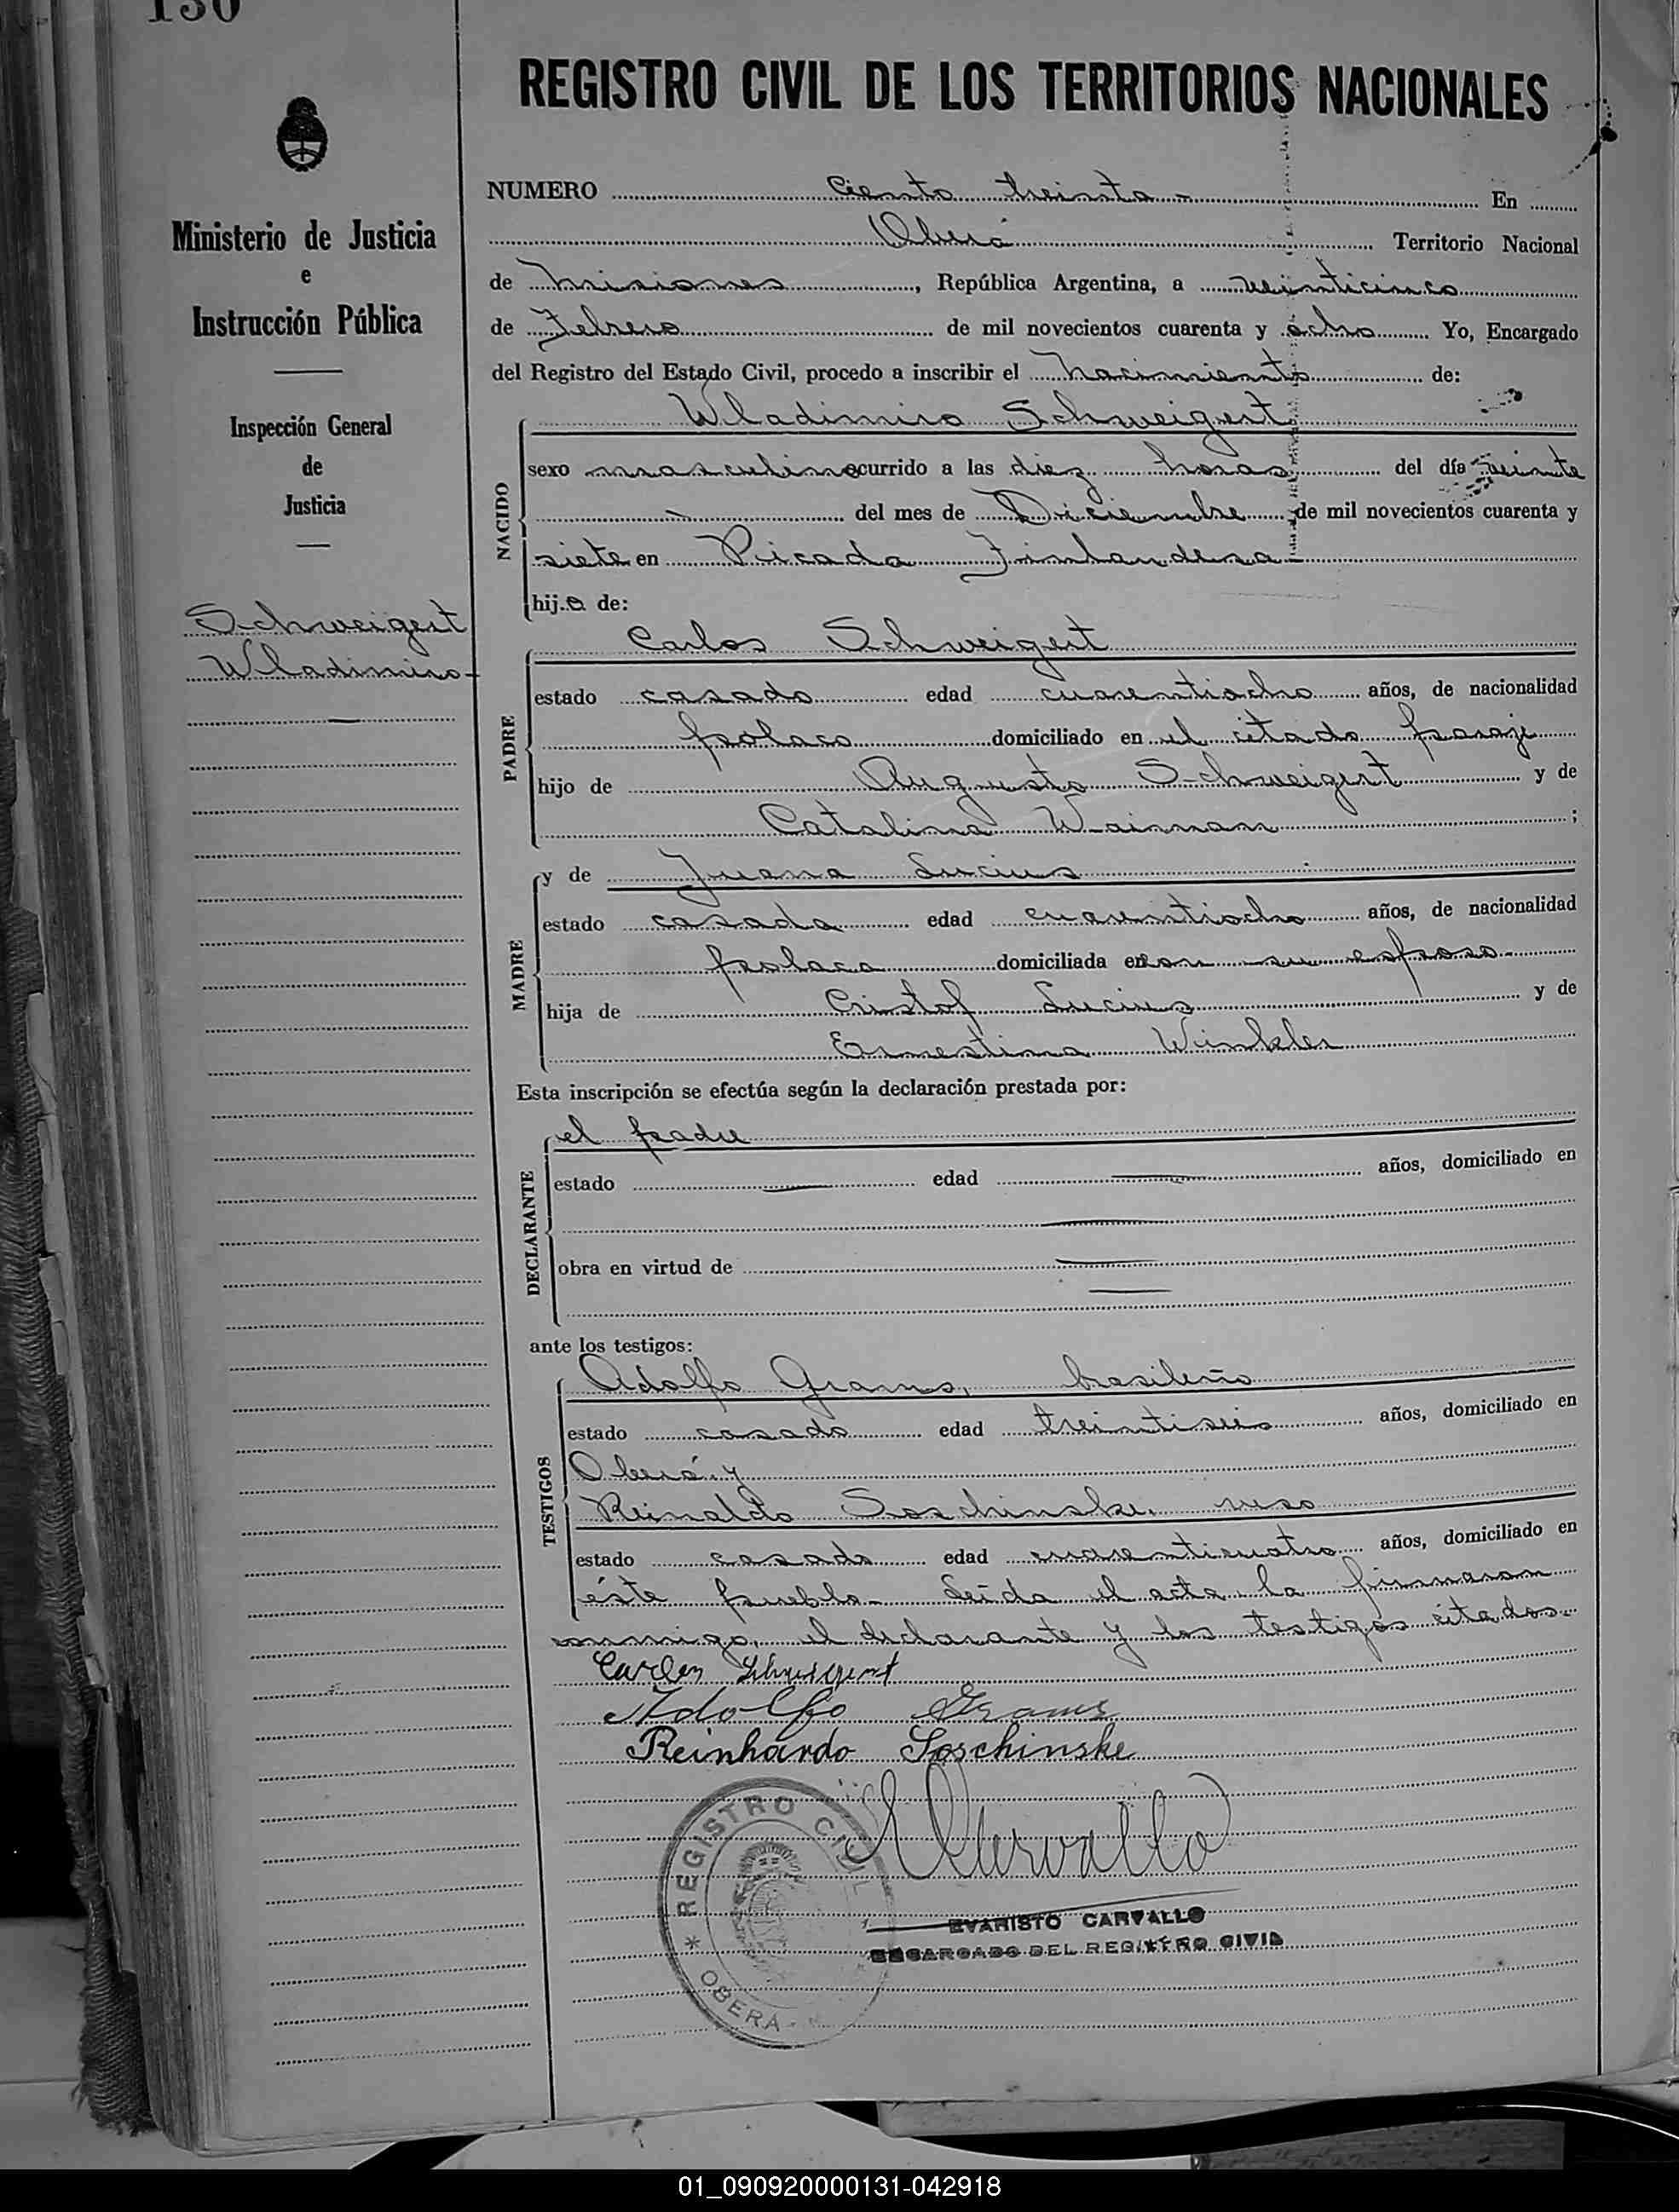 130
REGISTRO CIVIL DE LOS TERRITORIOS NACIONALES
Ministerio de Justicia
e
Instrucción Pública
Inspección General
de
Justicia
Schweigert
Wladimiro-
NUMERO Ciento treinta- En
Oberá Territorio Nacional
de Misiones, República Argentina, a veinticinco
de Febrero de mil novecientos cuarenta y ocho Yo, Encargado
del Registro del Estado Civil, procedo a inscribir el Nacimiento de:
Wladimiro Schweigert
NACIDO
sexo masculino ocurrido a las diez horas del día veinte
del mes de Diciembre de mil novecientos cuarenta y
siete en Picada Finlandesa
hijo de:
Carlos Schweigert
PADRE
estado casado edad cuarentiocho años, de nacionalidad
polaco domiciliado en el citado paraje
hijo de Augusto Schweigert y de
Catalina Wainman;
MADRE
y de Juana Lucius
estado casada edad cuarentiocho años, de nacionalidad
polaca domiciliada en con su esposo-
hija de Cristof Lucius y de
Ernestina Winkler
Esta inscripción se efectúa según la declaración prestada por:
DECLARANTE
el padre
estado edad años, domiciliado en
obra en virtud de
ante los testigos:
TESTIGOS
Adolfo Grams, brasileño
estado casado edad treintiseis años, domiciliado en
Oberá y
Reinaldo Soschinske, ruso
estado casado edad cuarenticuatro años, domiciliado en
éste pueblo- Leída el acta la firmaron
conmigo, el declarante y los testigos citados.-
Carlos Schweigert
Adolfo Grams
Reinhardo Soschinske
REGISTRO CIVIL
* OBERÁ-
Carvallo
EVARISTO CARVALLO
ENCARGADO DEL REGISTRO CIVIL
01_090920000131-042918